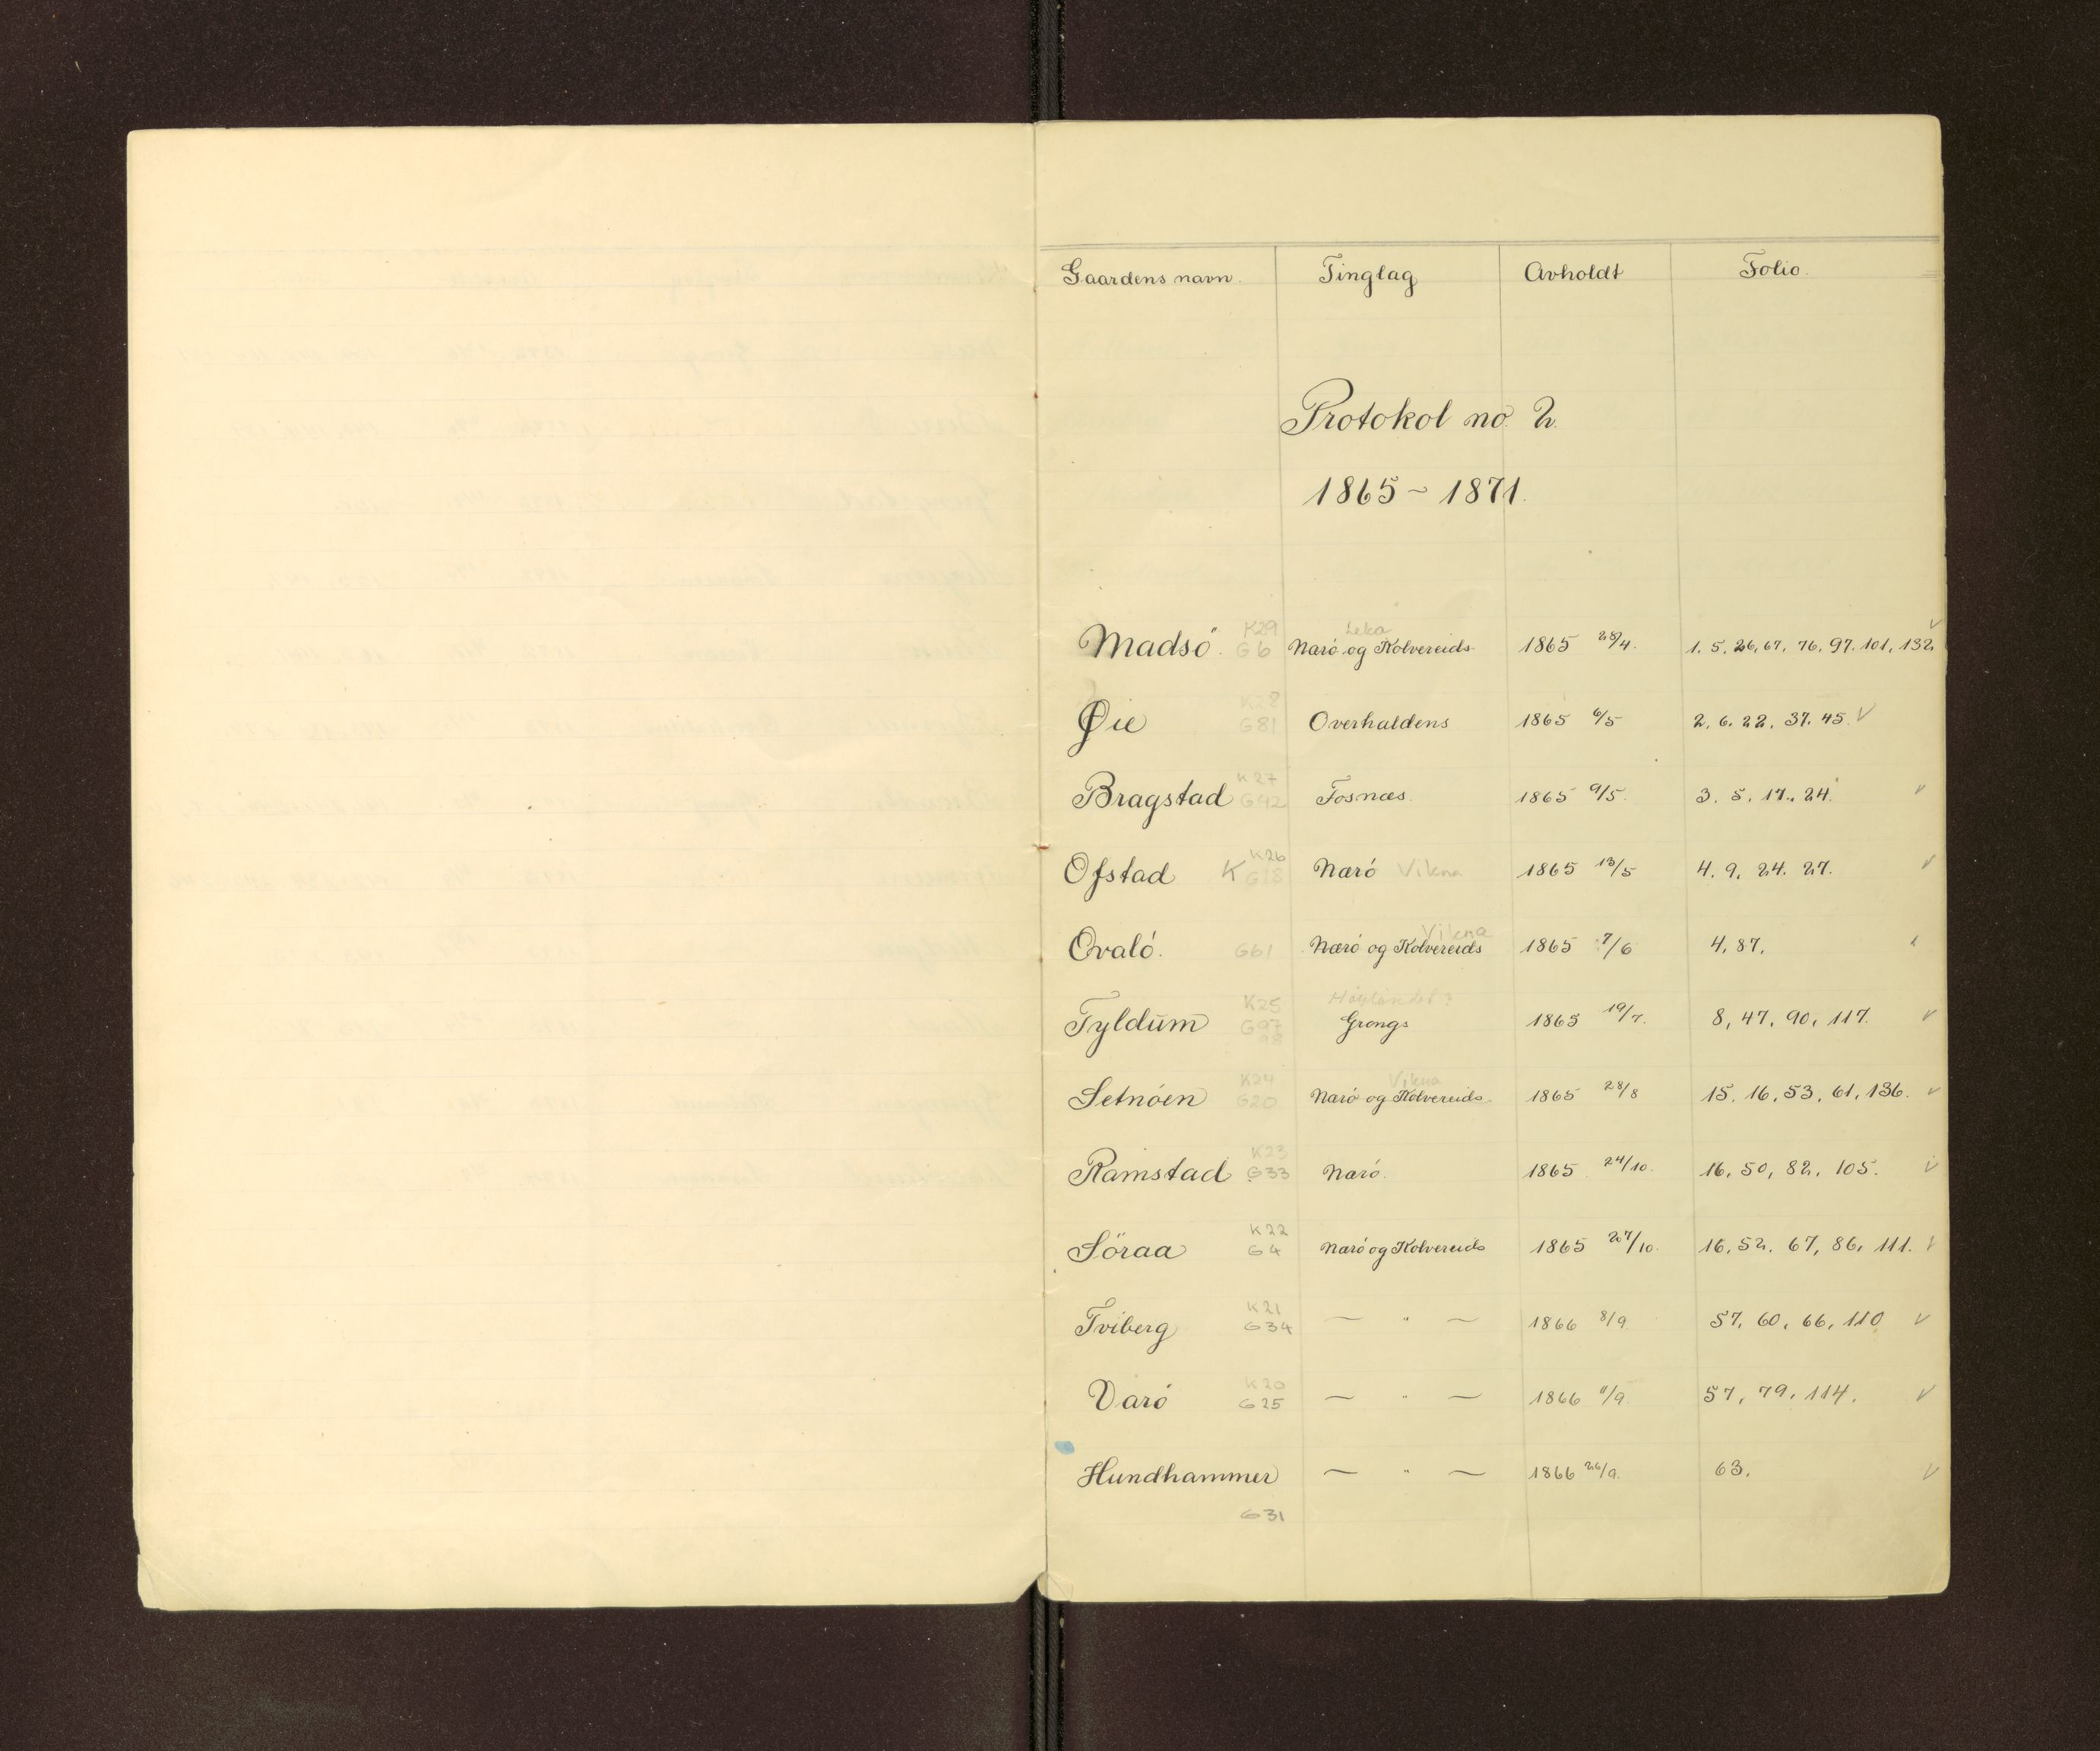 Gaardens navn. Tinglag Avholdt Folio.
Protokol no. 2.
1865 ~ 1871.
K29 Leka
Madsö. G6 Nærö og Kolvereids 1865 28/4. 1. 5. 26, 67, 76, 97. 101, 132 V
K28
Øie G81 Overhaldens 1865 6/5 2. 6. 22, 37. 45. V
K27
Bragstad G42 Fosnæs. 1865 9/5. 3. 5. 17., 24. V
K26
Ofstad K G18 Nærö Vikna 1865 13/5 4. 9. 24. 27. V
Vikna
Ovalö. G61 Nærö og Kolvereids 1865 7/6 4, 87.
K25 Høylandet?
Tyldum G97 Grongs 1865 19/7. 8, 47, 90, 117. V
98
K24 Vikna
Setnöen G20 Nærö og Kolvereids 1865 28/8 15. 16, 53, 61, 136. V
K23
Ramstad G33 Nærö. 1865 24/10. 16, 50, 82, 105. V
K22
Söraa G4 Nærö og Kolvereids 1865 27/10. 16, 52. 67, 86, 111. V
K21
Tviberg G34 — " — 1866 8/9 57, 60, 66, 110 V
K20
Varö G25 — " — 1866 11/9. 57, 79, 114. V
Hundhammer — " — 1866 26/9. 63. V
G31